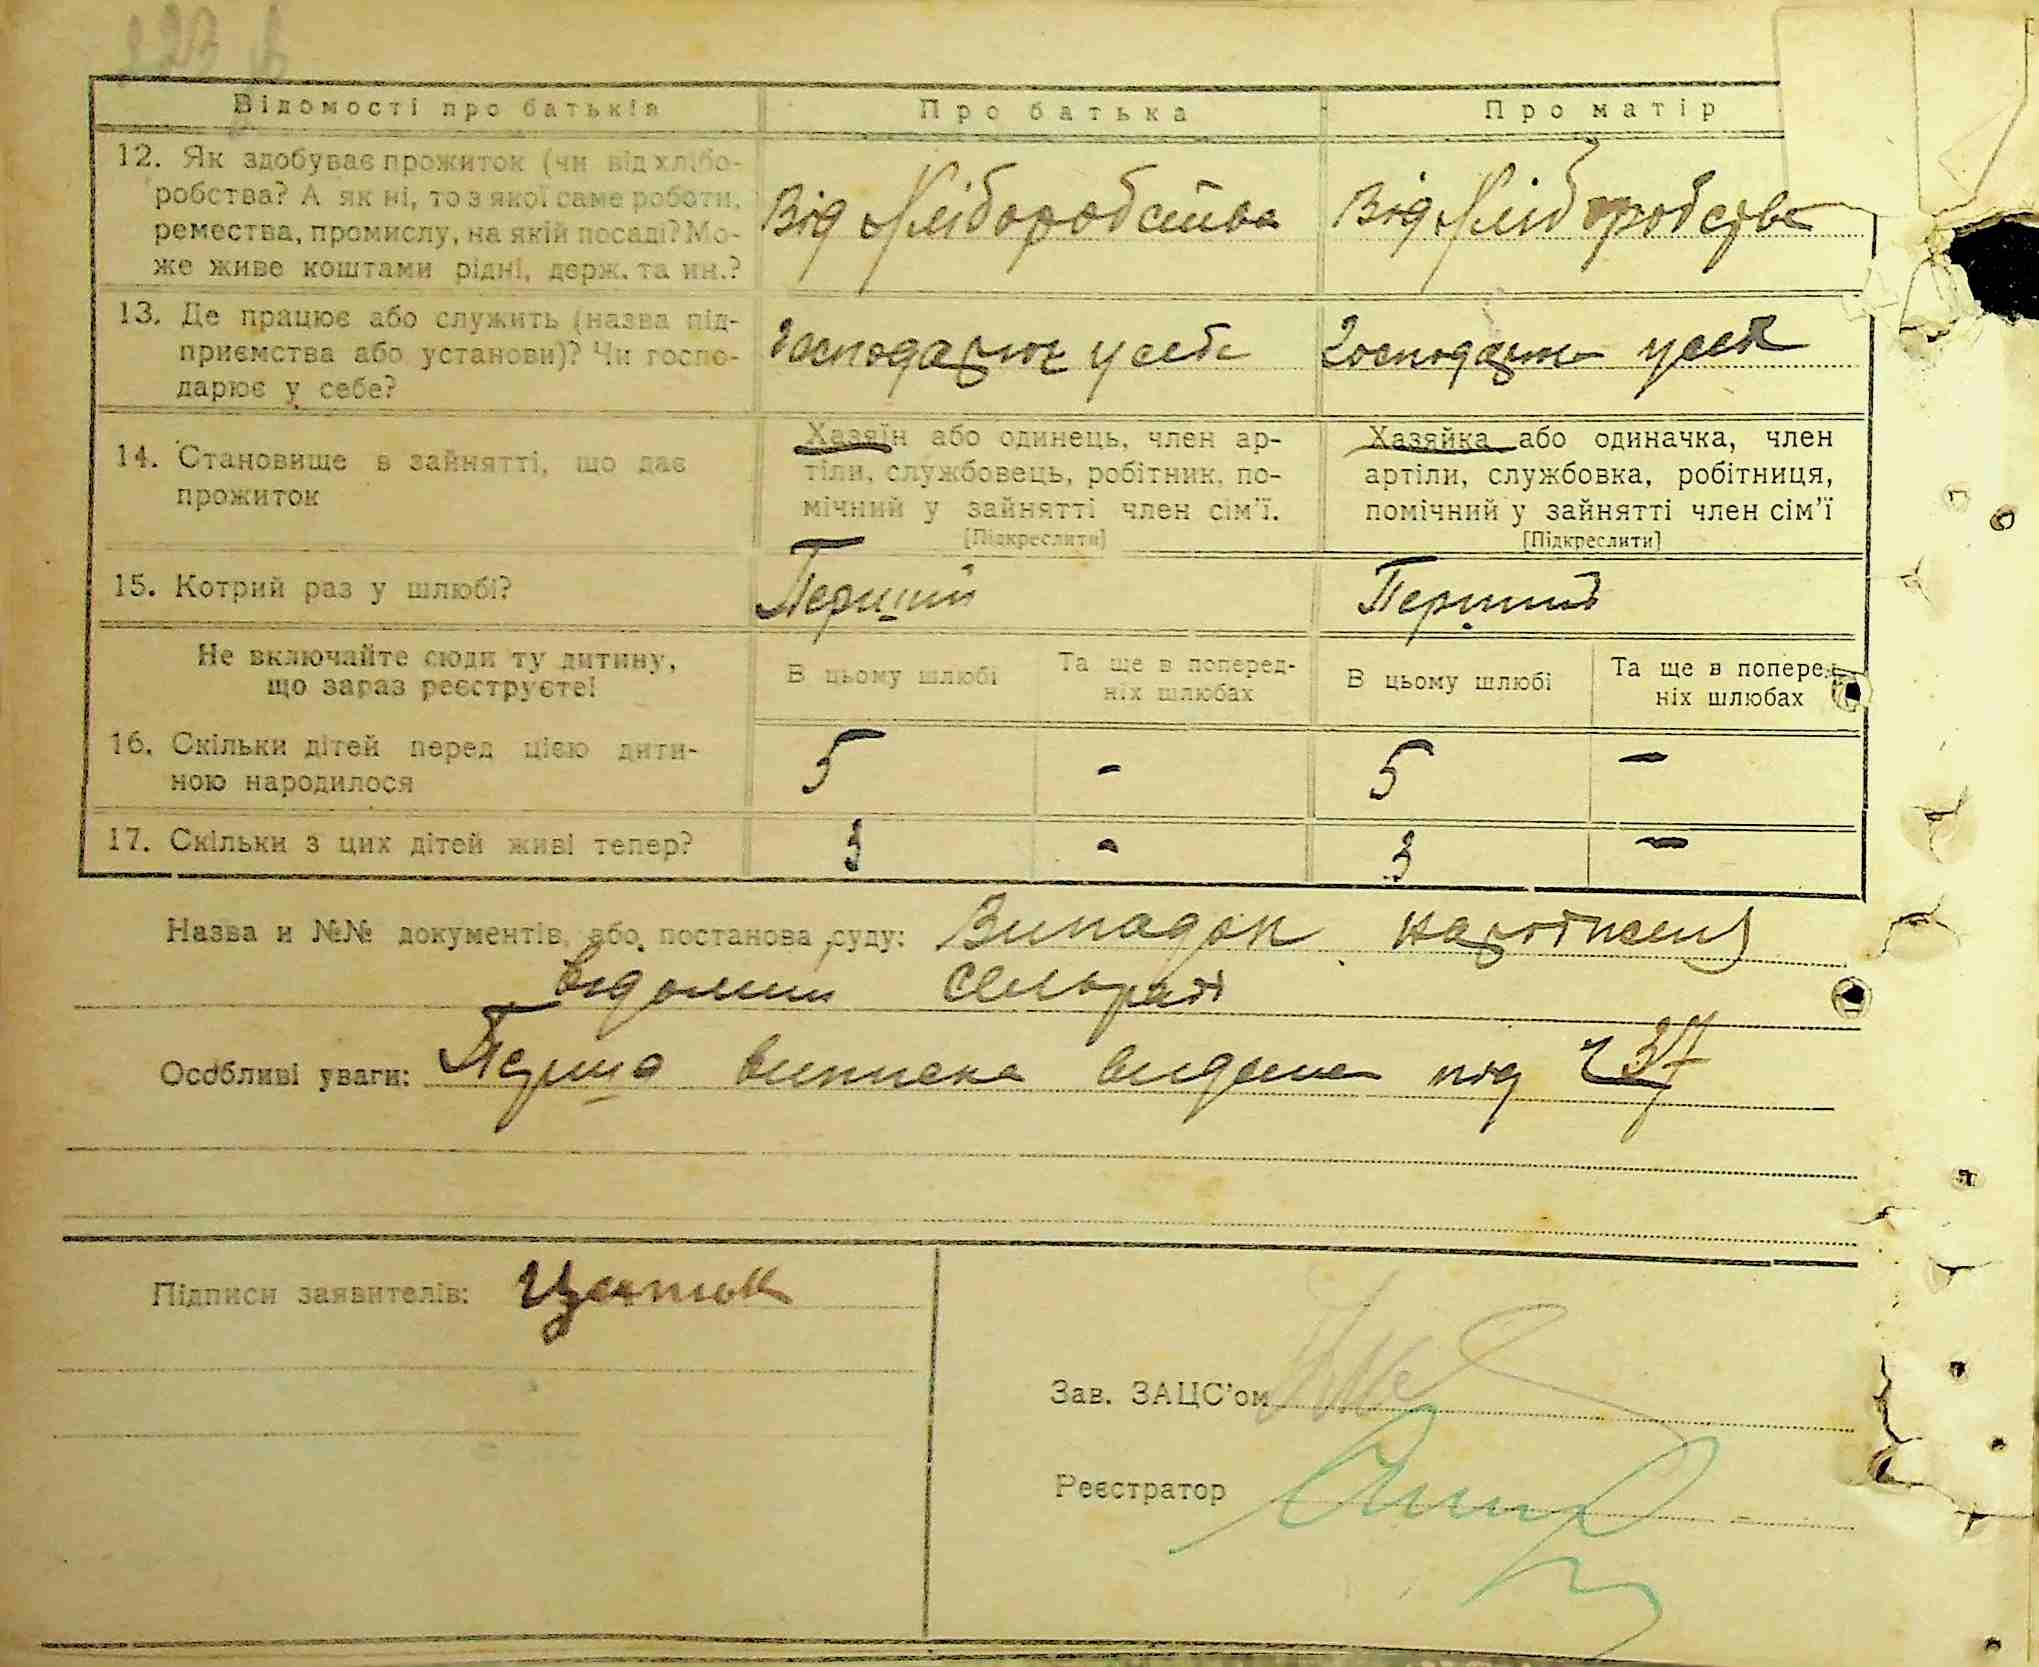 Відомості про батьків Про батька Про матір
12. Як здобуває прожиток (чи від хлібо-
робства? А як ні, то з якої саме роботи,
ремества, промислу, на якій посаді? Мо-
же живе коштами рідні, держ. та ин.?
Від хліборобства Від хліборобства
13. Де працює або служить (назва під-
приємства або установи)? Чи госпо-
дарює у себе?
Господарює у себе Господарює у себе
14. Становище в зайнятті, що дає
прожиток
Хазяїн або одинець, член ар-
тіли, службовець, робітник, по-
мічний у зайнятті член сім'ї.
[Підкреслити]
Хазяйка або одиначка, член
артіли, службовка, робітниця,
помічний у зайнятті член сім'ї
[Підкреслити]
15. Котрий раз у шлюбі? Перший Перший
Не включайте сюди ту дитину,
що зараз реєструєте!
В цьому шлюбі
Та ще в поперед-
ніх шлюбах
В цьому шлюбі
Та ще в поперед-
ніх шлюбах
16. Скільки дітей перед цією дити-
ною народилося
5 - 5 -
17. Скільки з цих дітей живі тепер? 3 - 3 -
Назва и №№ документів, або постанова суду: Випадок народження
відомий сельраді
Особливі уваги: Перша виписка видана під ч 37
Підписи заявителів:
Зав. ЗАЦС'ом
Реєстратор